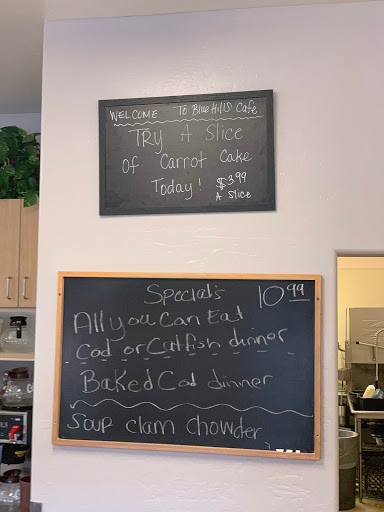 WELCOME To Blue Hills Cafe
TRY A Slice
of Carrot Cake
Today! $3.99
A Slice
Special's 10.99
All you Can Eat
Cod or Catfish dinner
Baked Cod dinner
Soup clam chowder